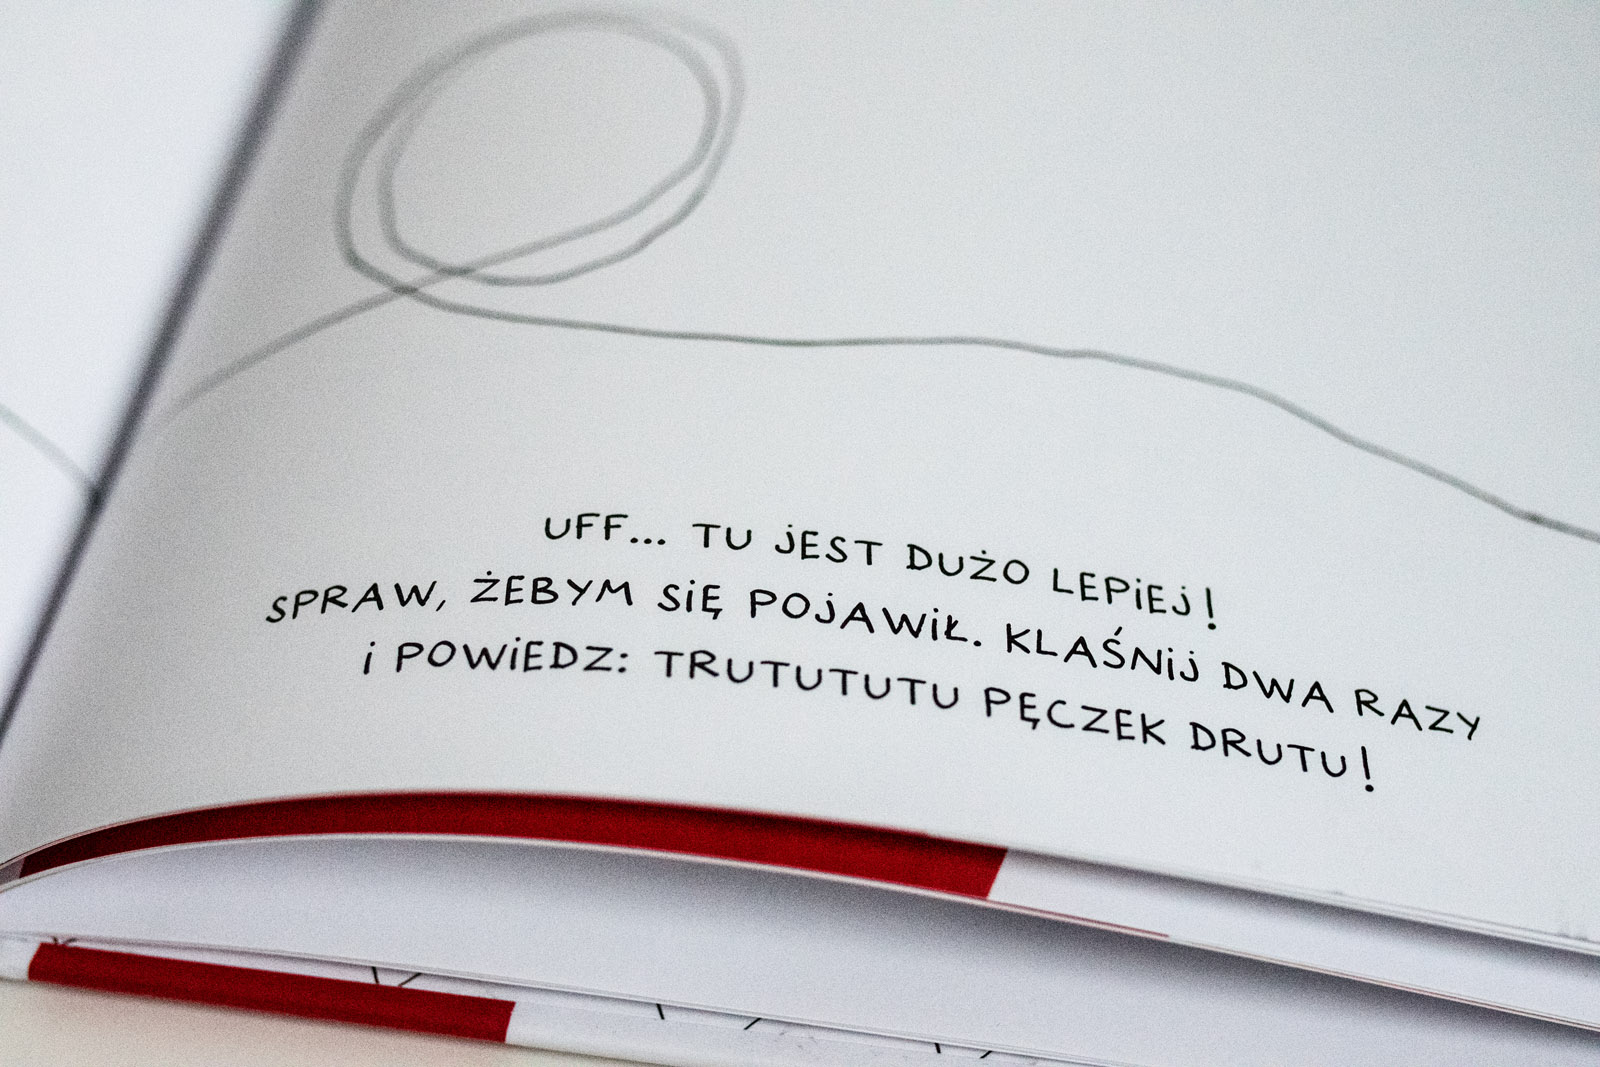 UFF... TU JEST DUŻO LEPIEJ!
SPRAW, ŻEBYM SIĘ POJAWIŁ. KLAŚNIJ DWA RAZY
I POWIEDZ: TRUTUTUTU PĘCZEK DRUTU!